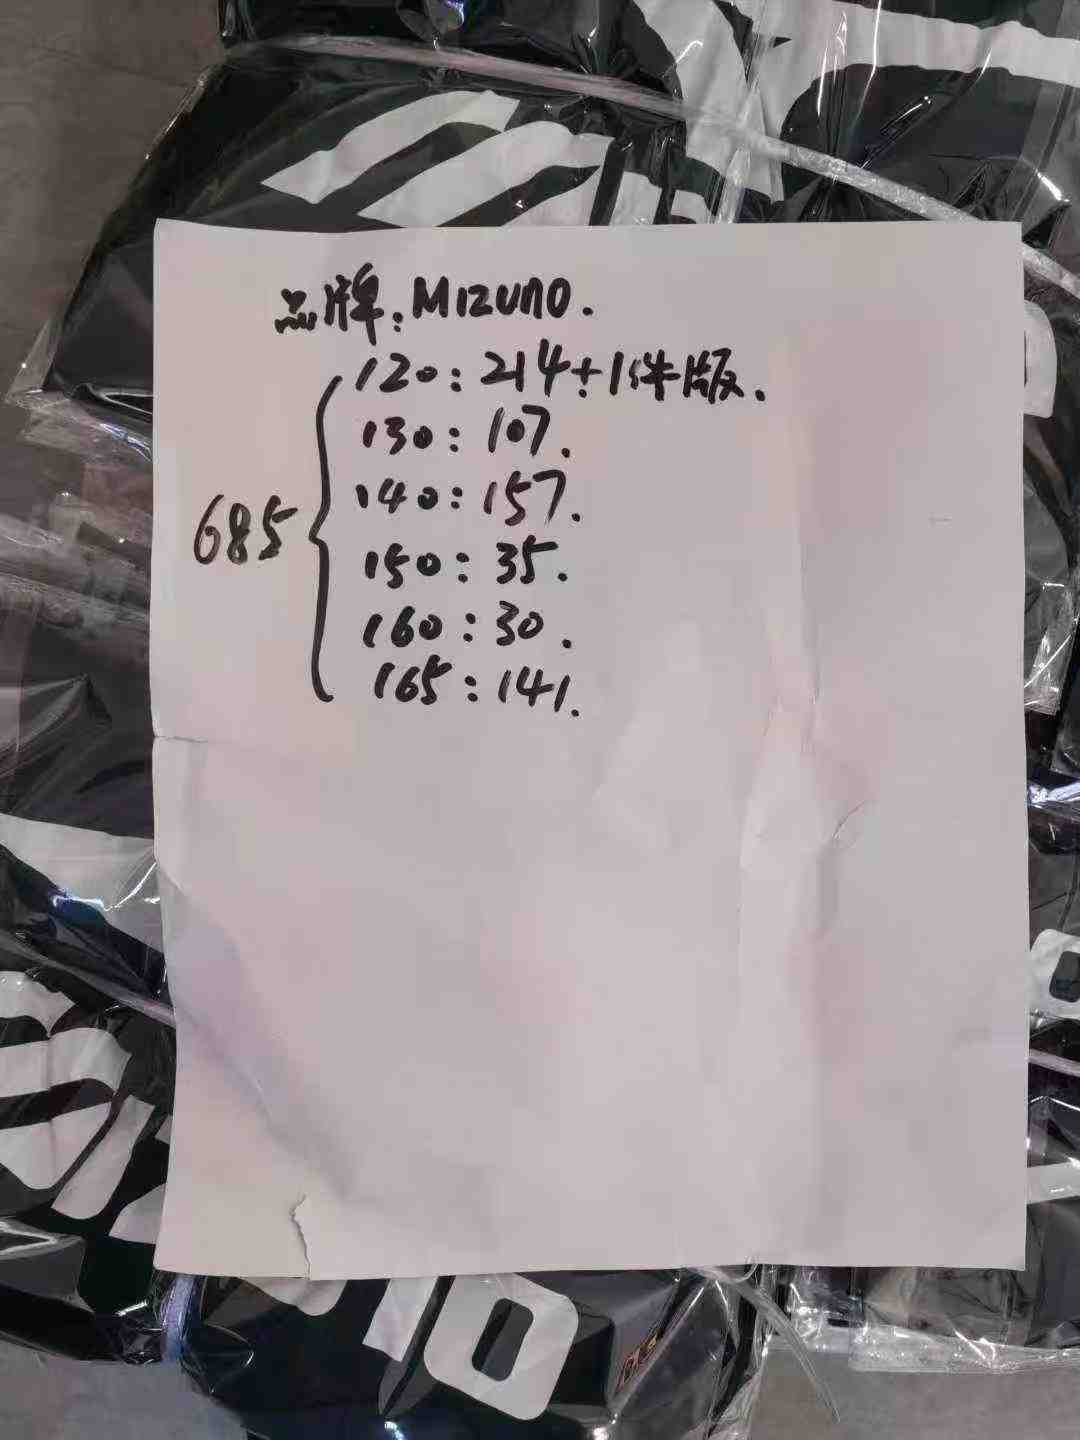 品牌: MIZUNO.
120: 214+1件版.
130: 107.
140: 157.
685
150: 35.
160: 30.
165: 141.